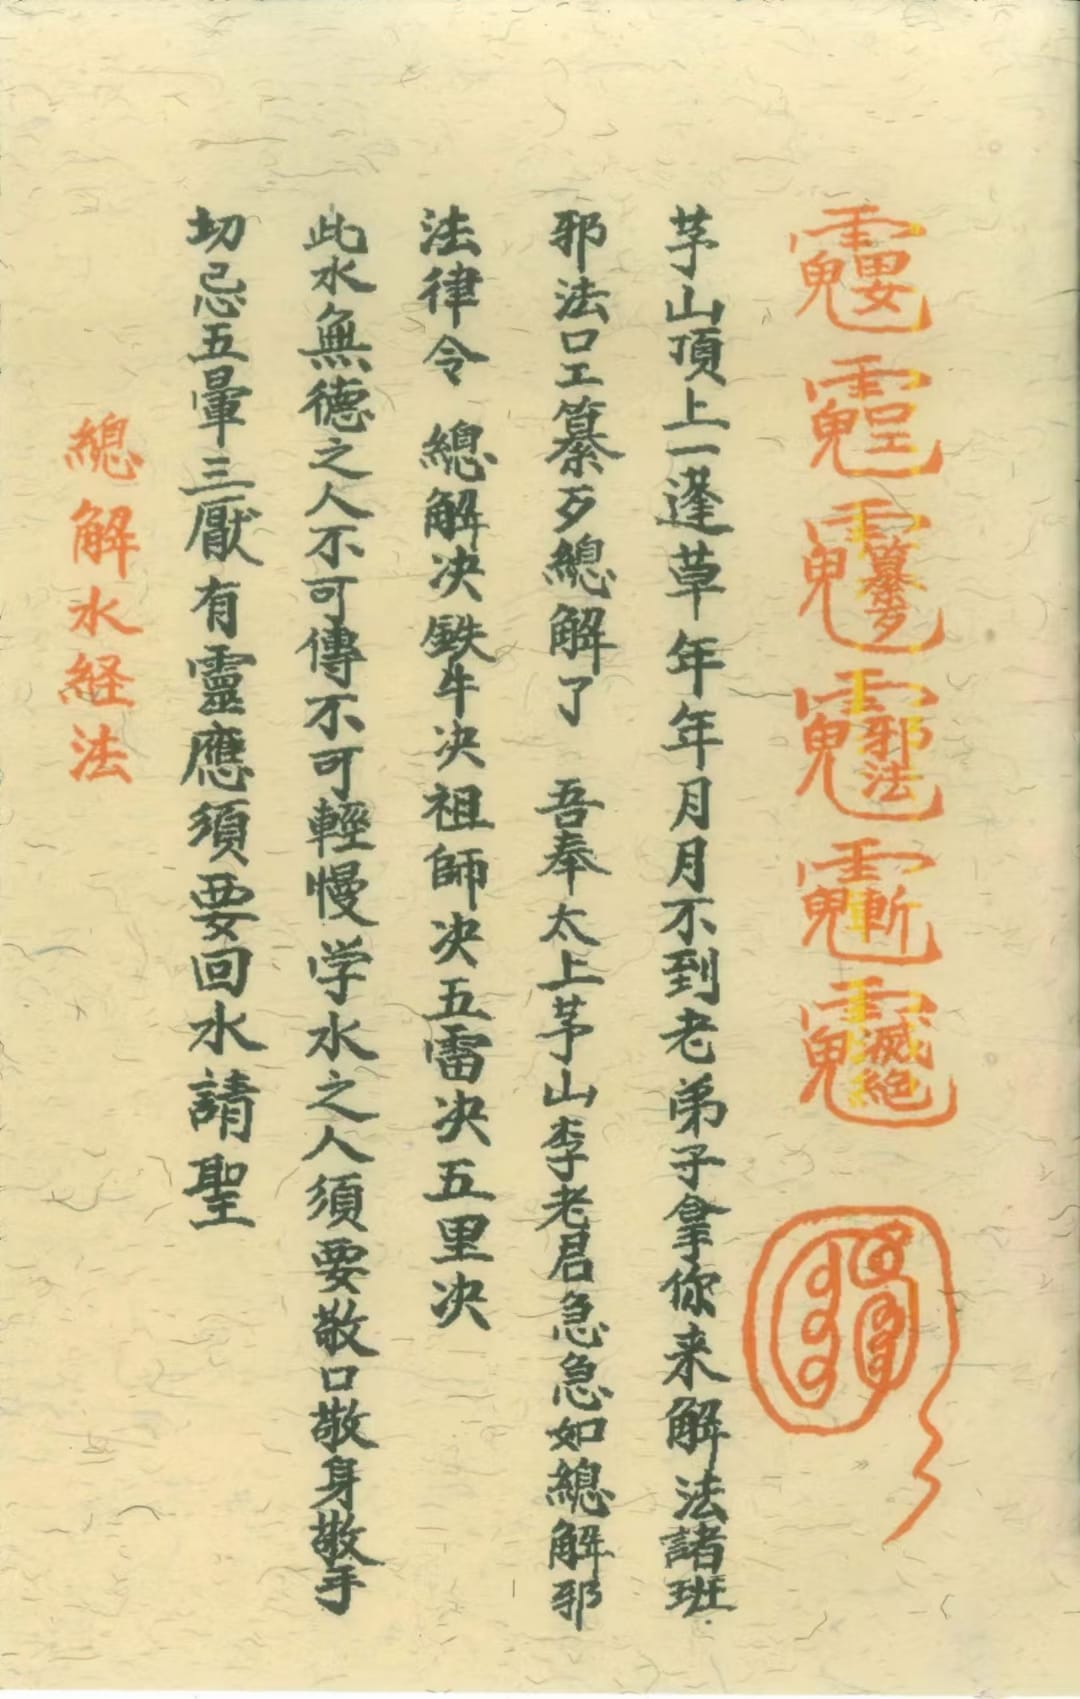 茅山頂上一逢草年年月月不到老弟子拿你来解法諸班
邪法口工纂歹總解了 吾奉太上茅山李老君急急如總解邪
法律令 總解决鉄牛决祖師决五雷决五里决
此水無德之人不可傳不可輕慢学水之人須要敬口敬身敬手
切忌五暈三厭有靈應須要回水請聖
總解水経法